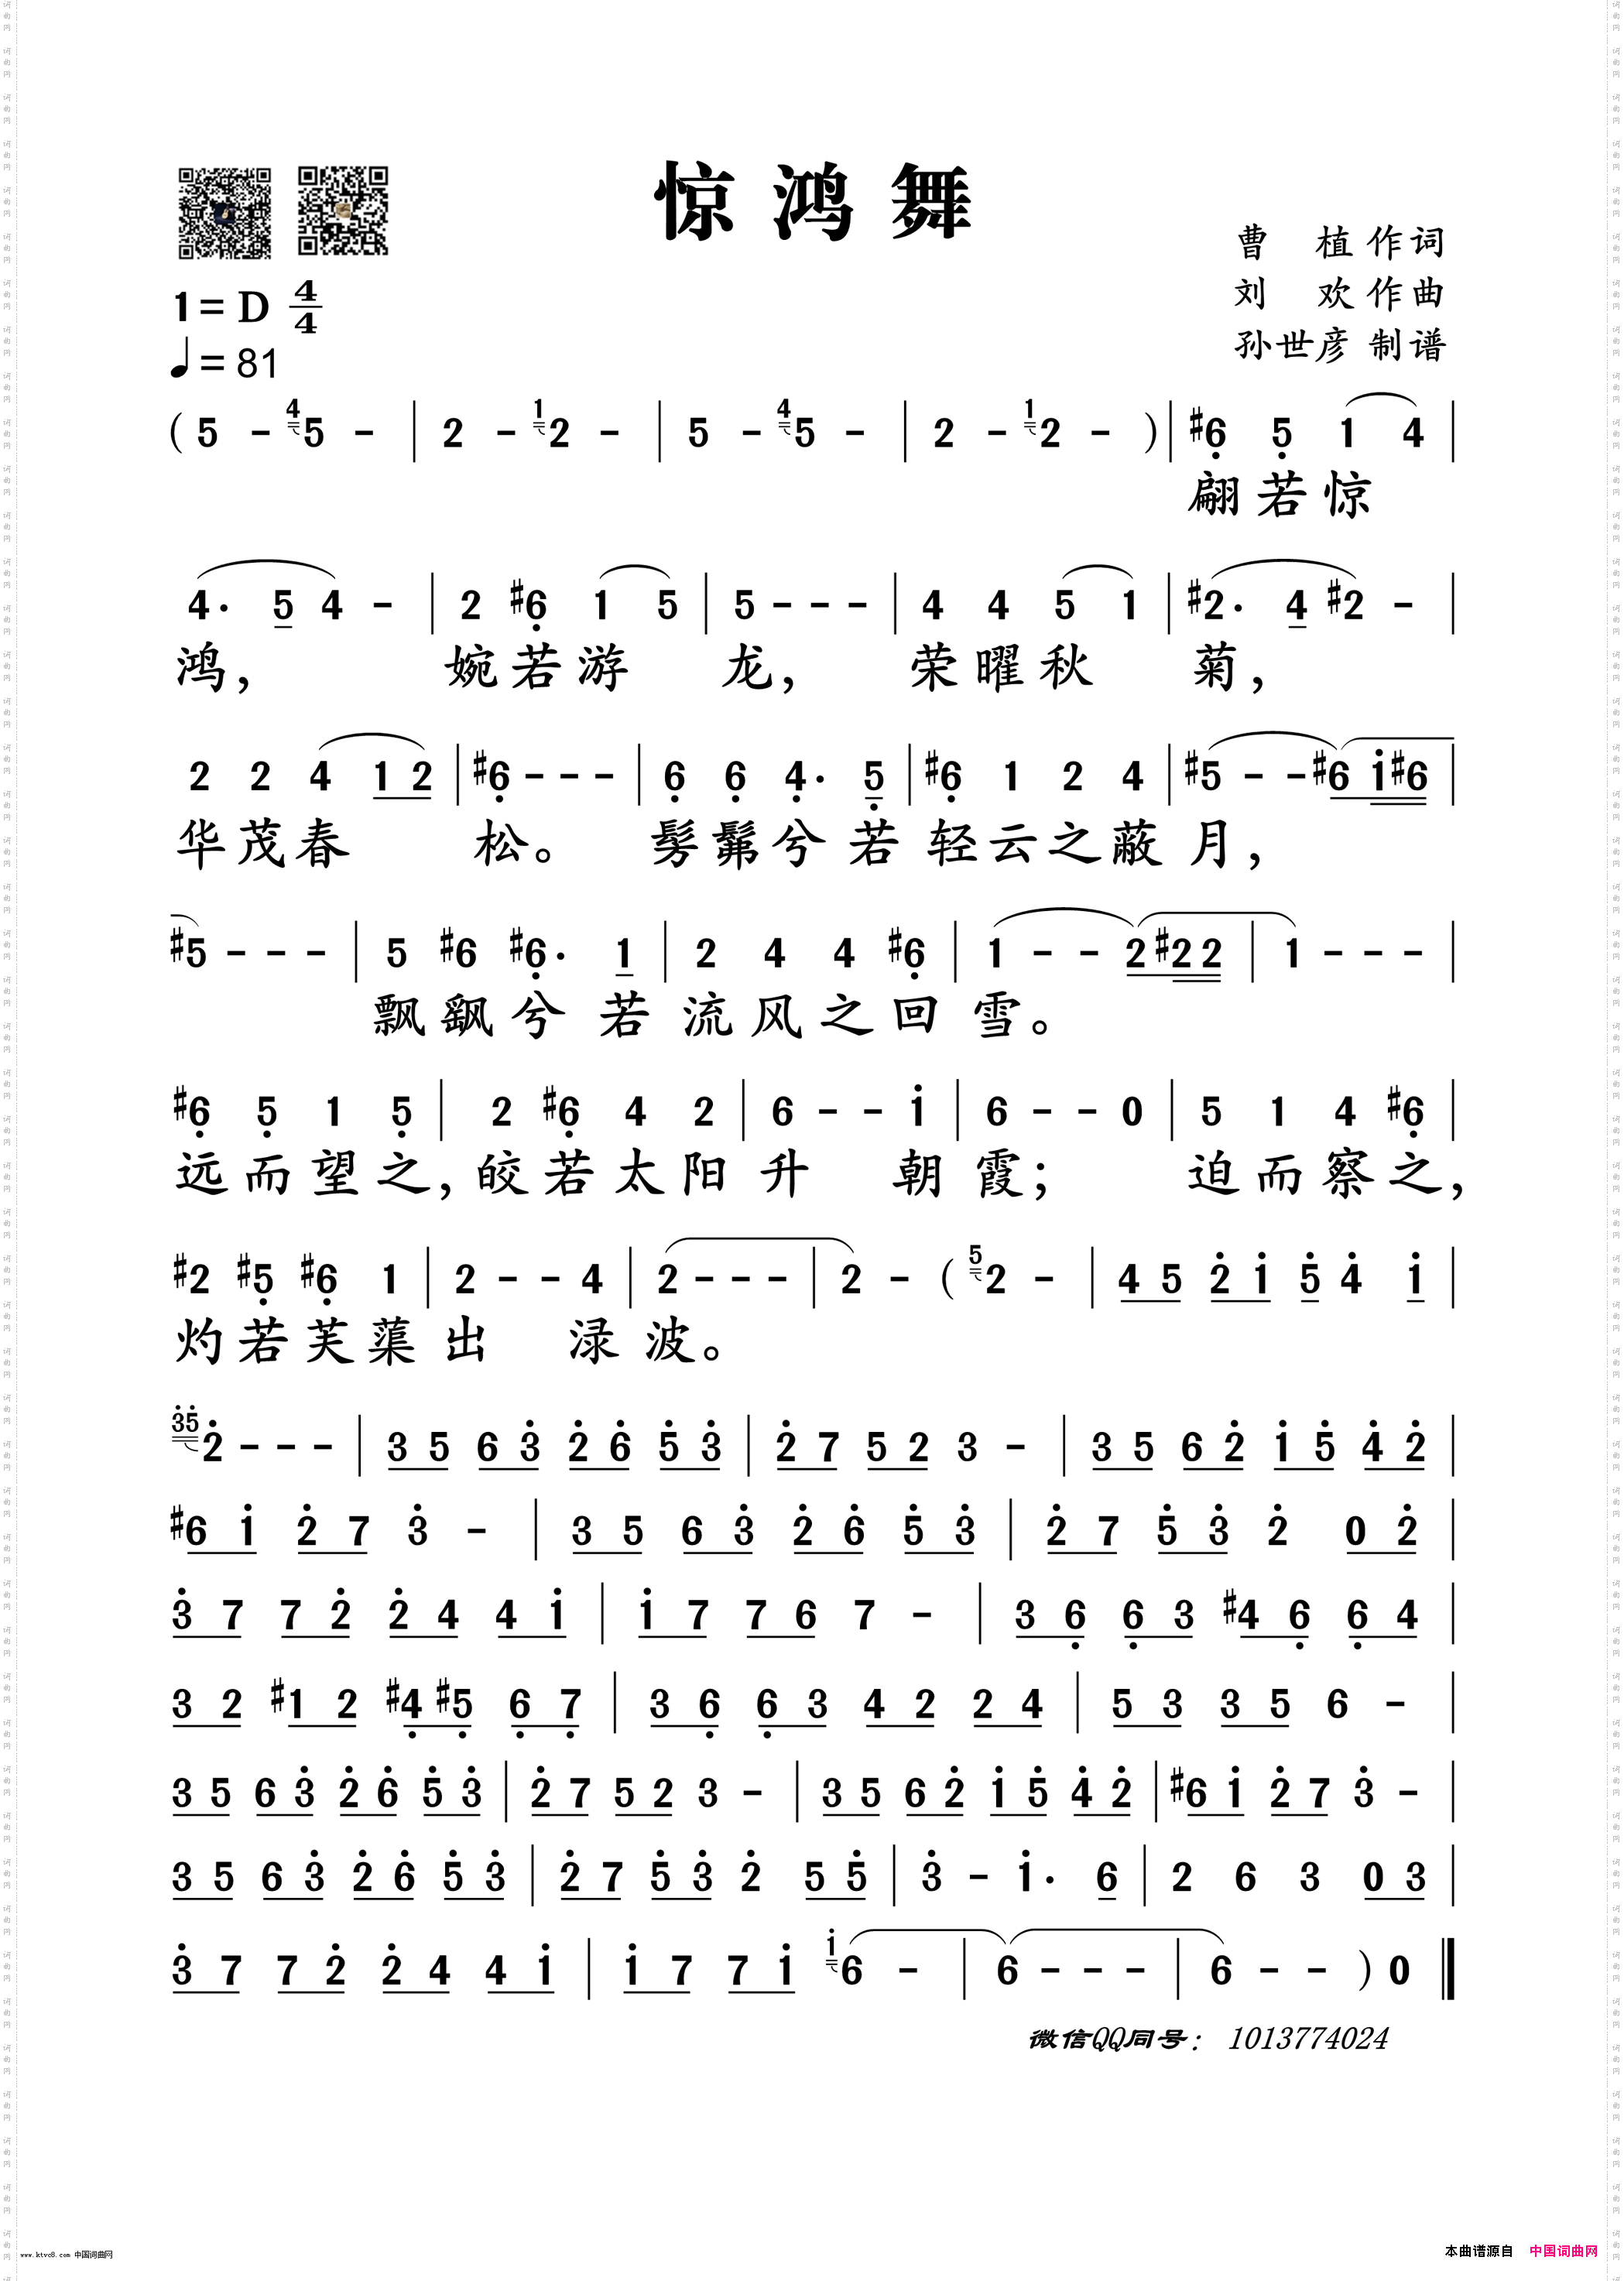 惊鸿舞
曹 植作词
刘 欢作曲
孙世彦 制谱
1=D 4/4
♩=81
( 5 - 4 5 - | 2 - 1 2 - | 5 - 4 5 - | 2 - 1 2 - ) | #6̣ 5̣ 1 4 |
翩若惊
4· 5 4 - | 2 #6̣ 1 5 | 5 - - - | 4 4 5 1 | #2· 4 #2 - |
鸿, 婉若游 龙, 荣曜秋 菊,
2 2 4 1 2 | #6̣ - - - | 6̣ 6̣ 4̣· 5̣ | #6̣ 1 2 4 | #5 - - #6 1̇ #6 |
华茂春 松。 髣髴兮 若 轻云之蔽 月,
#5 - - - | 5 #6 #6̣· 1 | 2 4 4 #6̣ | 1 - - 2 #2 2 | 1 - - - |
飘飖兮 若 流风之回 雪。
#6̣ 5̣ 1 5̣ | 2 #6̣ 4 2 | 6 - - 1̇ | 6 - - 0 | 5 1 4 #6̣ |
远而望之, 皎若太阳 升 朝 霞; 迫而察之,
#2 #5̣ #6̣ 1 | 2 - - 4 | 2 - - - | 2 - ( 5 2 - | 4 5 2̇ 1̇ 5̇ 4̇ 1̇ |
灼若芙蕖 出 渌 波。
3̇5̇ 2̇ - - - | 3 5 6 3̇ 2̇ 6̇ 5̇ 3̇ | 2̇ 7 5 2 3 - | 3 5 6 2̇ 1̇ 5̇ 4̇ 2̇ |
#6 1̇ 2̇ 7 3̇ - | 3 5 6 3̇ 2̇ 6̇ 5̇ 3̇ | 2̇ 7 5̇ 3̇ 2̇ 0 2̇ |
3̇ 7 7 2̇ 2̇ 4 4 1̇ | 1̇ 7 7 6 7 - | 3 6̣ 6̣ 3 #4 6̣ 6̣ 4 |
3 2 #1 2 #4̣ #5̣ 6̣ 7̣ | 3 6̣ 6̣ 3 4 2 2 4 | 5 3 3 5 6 - |
3 5 6 3̇ 2̇ 6̇ 5̇ 3̇ | 2̇ 7 5 2 3 - | 3 5 6 2̇ 1̇ 5̇ 4̇ 2̇ | #6 1̇ 2̇ 7 3̇ - |
3 5 6 3̇ 2̇ 6̇ 5̇ 3̇ | 2̇ 7 5̇ 3̇ 2̇ 5 5̇ | 3̇ - 1̇· 6 | 2 6 3 0 3 |
3̇ 7 7 2̇ 2̇ 4 4 1̇ | 1̇ 7 7 1̇ 1̇ 6 - | 6 - - - | 6 - - ) 0 ‖
微信QQ同号: 1013774024
www.ktvc8.com 中国词曲网
本曲谱源自 中国词曲网